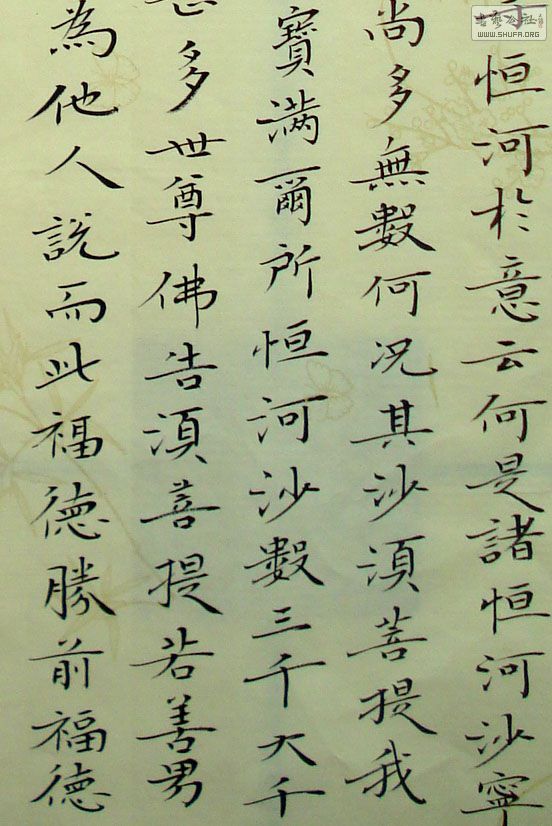 恒河於意云何是諸恒河沙寧
尚多無數何況其沙須菩提我
寶滿爾所恒河沙數三千大千
多世尊佛告須菩提若善男
為他人說而此福德勝前福德
書藝公社
WWW.SHUFA.ORG